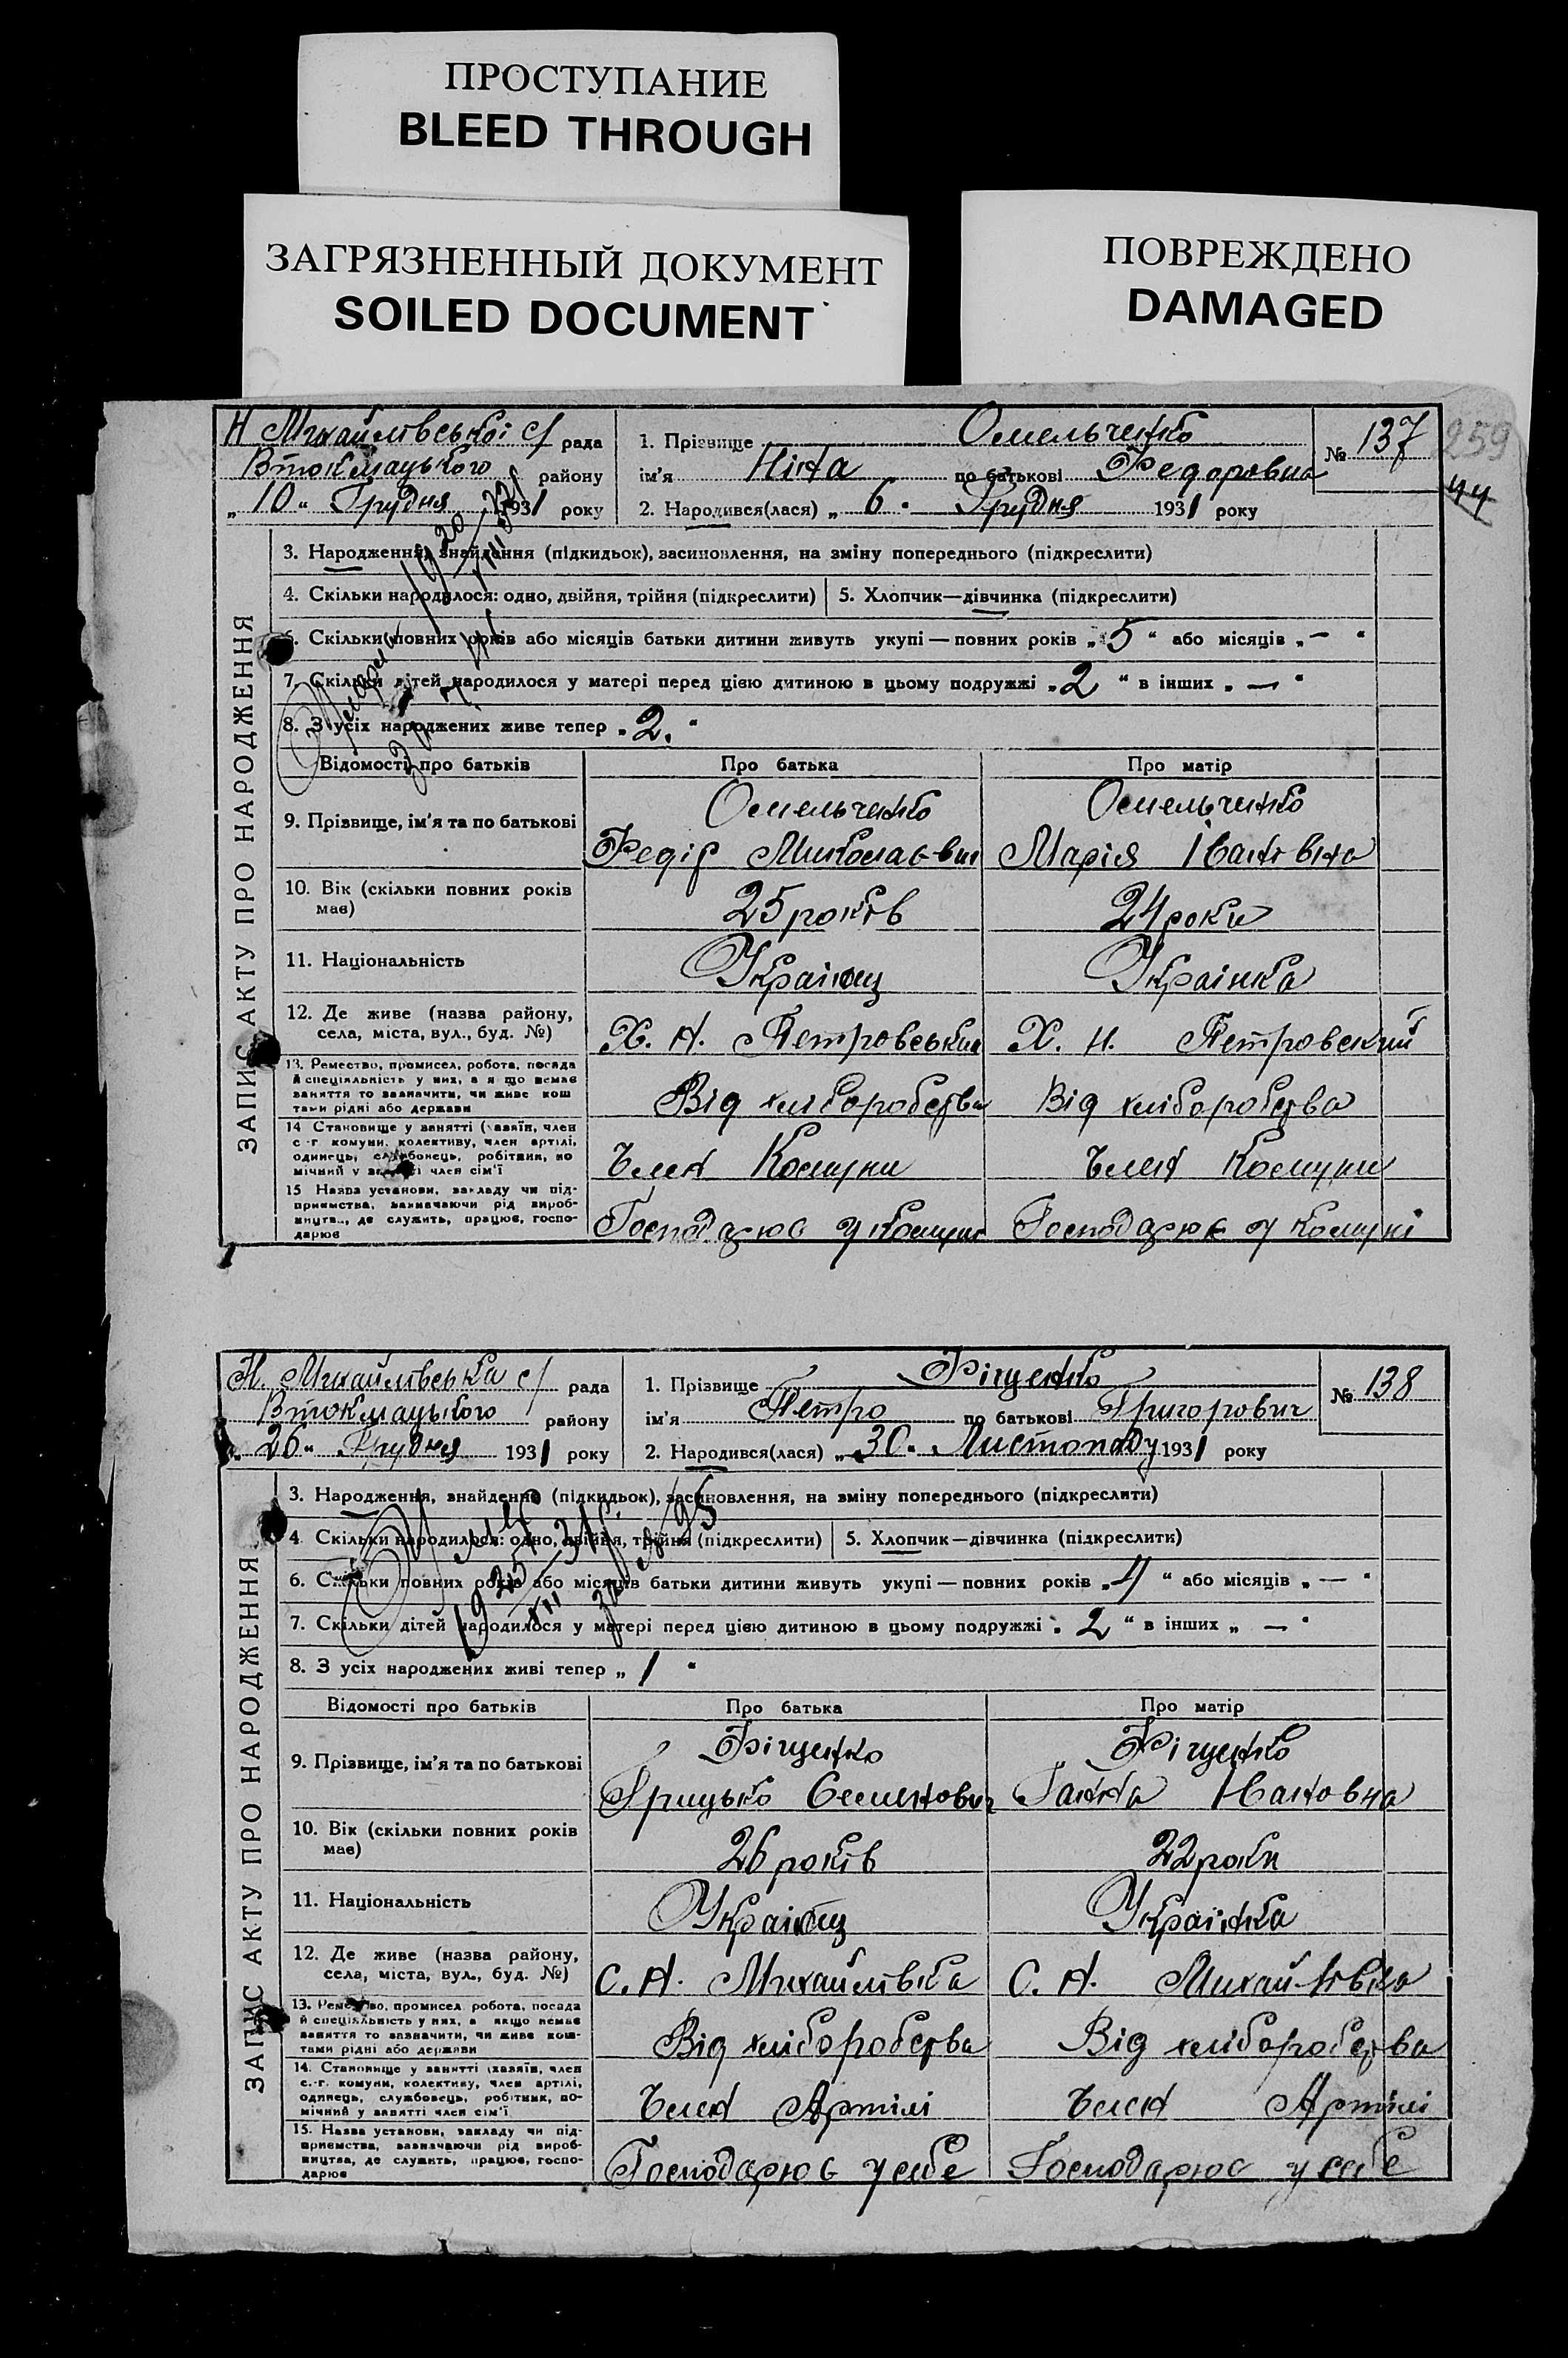 ПРОСТУПАНИЕ
BLEED THROUGH
ЗАГРЯЗНЕННЫЙ ДОКУМЕНТ
SOILED DOCUMENT
ПОВРЕЖДЕНО
DAMAGED
259
44
Н Михайлівської с/ рада
Втокмацького району
„ 10 " Грудня 1931 року
1. Прізвище Омельченко
ім'я Ніна по батькові Федоровна
№ 137
2. Народився(лася) „ 6 " Грудня 1931 року
ЗАПИС АКТУ ПРО НАРОДЖЕННЯ
3. Народження, знайдення (підкидьок), засиновлення, на зміну попереднього (підкреслити)
4. Скільки народилося: одно, двійня, трійня (підкреслити) 5. Хлопчик—дівчинка (підкреслити)
6. Скільки повних років або місяців батьки дитини живуть укупі — повних років „ 5 " або місяців „ — "
7. Скільки дітей народилося у матері перед цією дитиною в цьому подружжі „ 2 " в інших „ — "
8. З усіх народжених живе тепер „ 2. "
Відомості про батьків Про батька Про матір
9. Прізвище, ім'я та по батькові
Омельченко Омельченко
Федір Миколаєвич Марія Івановна
10. Вік (скільки повних років має)
25 років 24 роки
11. Національність Українец Українка
12. Де живе (назва району,
села, міста, вул., буд. №)
Х. Н. Петровський Х. Н. Петровский
13. Ремество, промисел, робота, посада
й спеціяльність у них, а якщо немає
заняття то зазначити, чи живе кош
тами рідні або держави
Від хліборобства Від хліборобства
14 Становище у занятті (хазяїн, член
с.-г. комуни, колективу, член артілі,
одинець, службовець, робітник, по
мічний у занятті член сім'ї
Член Комуни Член Комуни
15 Назва установи, закладу чи під-
приємства, зазначаючи рід вироб-
ництва, де служить, працює, госпо-
дарює
Господарює у комуні Господарює у комуні
Н. Михайлівська с/ рада
Втокмацького району
„ 26 " Грудня 1931 року
1. Прізвище Фіщенко
ім'я Петро по батькові Григорович
№ 138
2. Народився(лася) „ 30 " Листопаду 1931 року
ЗАПИС АКТУ ПРО НАРОДЖЕННЯ
3. Народження, знайдення (підкидьок), засиновлення, на зміну попереднього (підкреслити)
4 Скільки народилося: одно, двійня, трійня (підкреслити) 5. Хлопчик—дівчинка (підкреслити)
6. Скільки повних років або місяців батьки дитини живуть укупі — повних років „ 4 " або місяців „ — "
7. Скільки дітей народилося у матері перед цією дитиною в цьому подружжі „ 2 " в інших „ — "
8. З усіх народжених живі тепер „ 1 "
Відомості про батьків Про батька Про матір
9. Прізвище, ім'я та по батькові
Фіщенко Фіщенко
Грицько Семенович Ганна Івановна
10. Вік (скільки повних років має)
26 років 22 роки
11. Національність Українец Українка
12. Де живе (назва району,
села, міста, вул., буд. №)
С. Н. Михайлівка С. Н. Михайлівка
13. Ремество, промисел робота, посада
й спеціяльність у них, а якщо немає
заняття то зазначити, чи живе кош-
тами рідні або держави
Від хліборобства Від хліборобства
14. Становище у занятті (хазяїн, член
с.-г. комуни, колективу, член артілі,
одинець, службовець, робітник, по-
мічний у занятті член сім'ї
Член Артілі Член Артілі
15. Назва установи, закладу чи під-
приємства, зазначаючи рід вироб-
ництва, де служить, працює, госпо-
дарює
Господарює у себе Господарює у себе